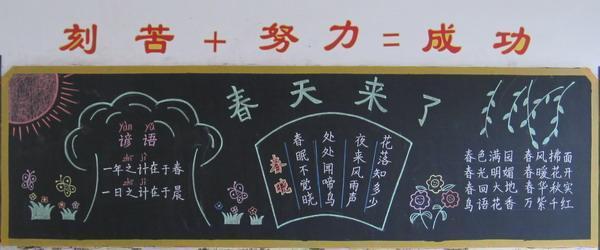 刻苦+努力=成功
春天来了
yàn yǔ
谚语
zhī jì
一年之计在于春
zhī jì
一日之计在于晨
春晓
春眠不觉晓
处处闻啼鸟
夜来风雨声
花落知多少
春色满园 春风拂面
春光明媚 春暖花开
春回大地 春华秋实
鸟语花香 万紫千红